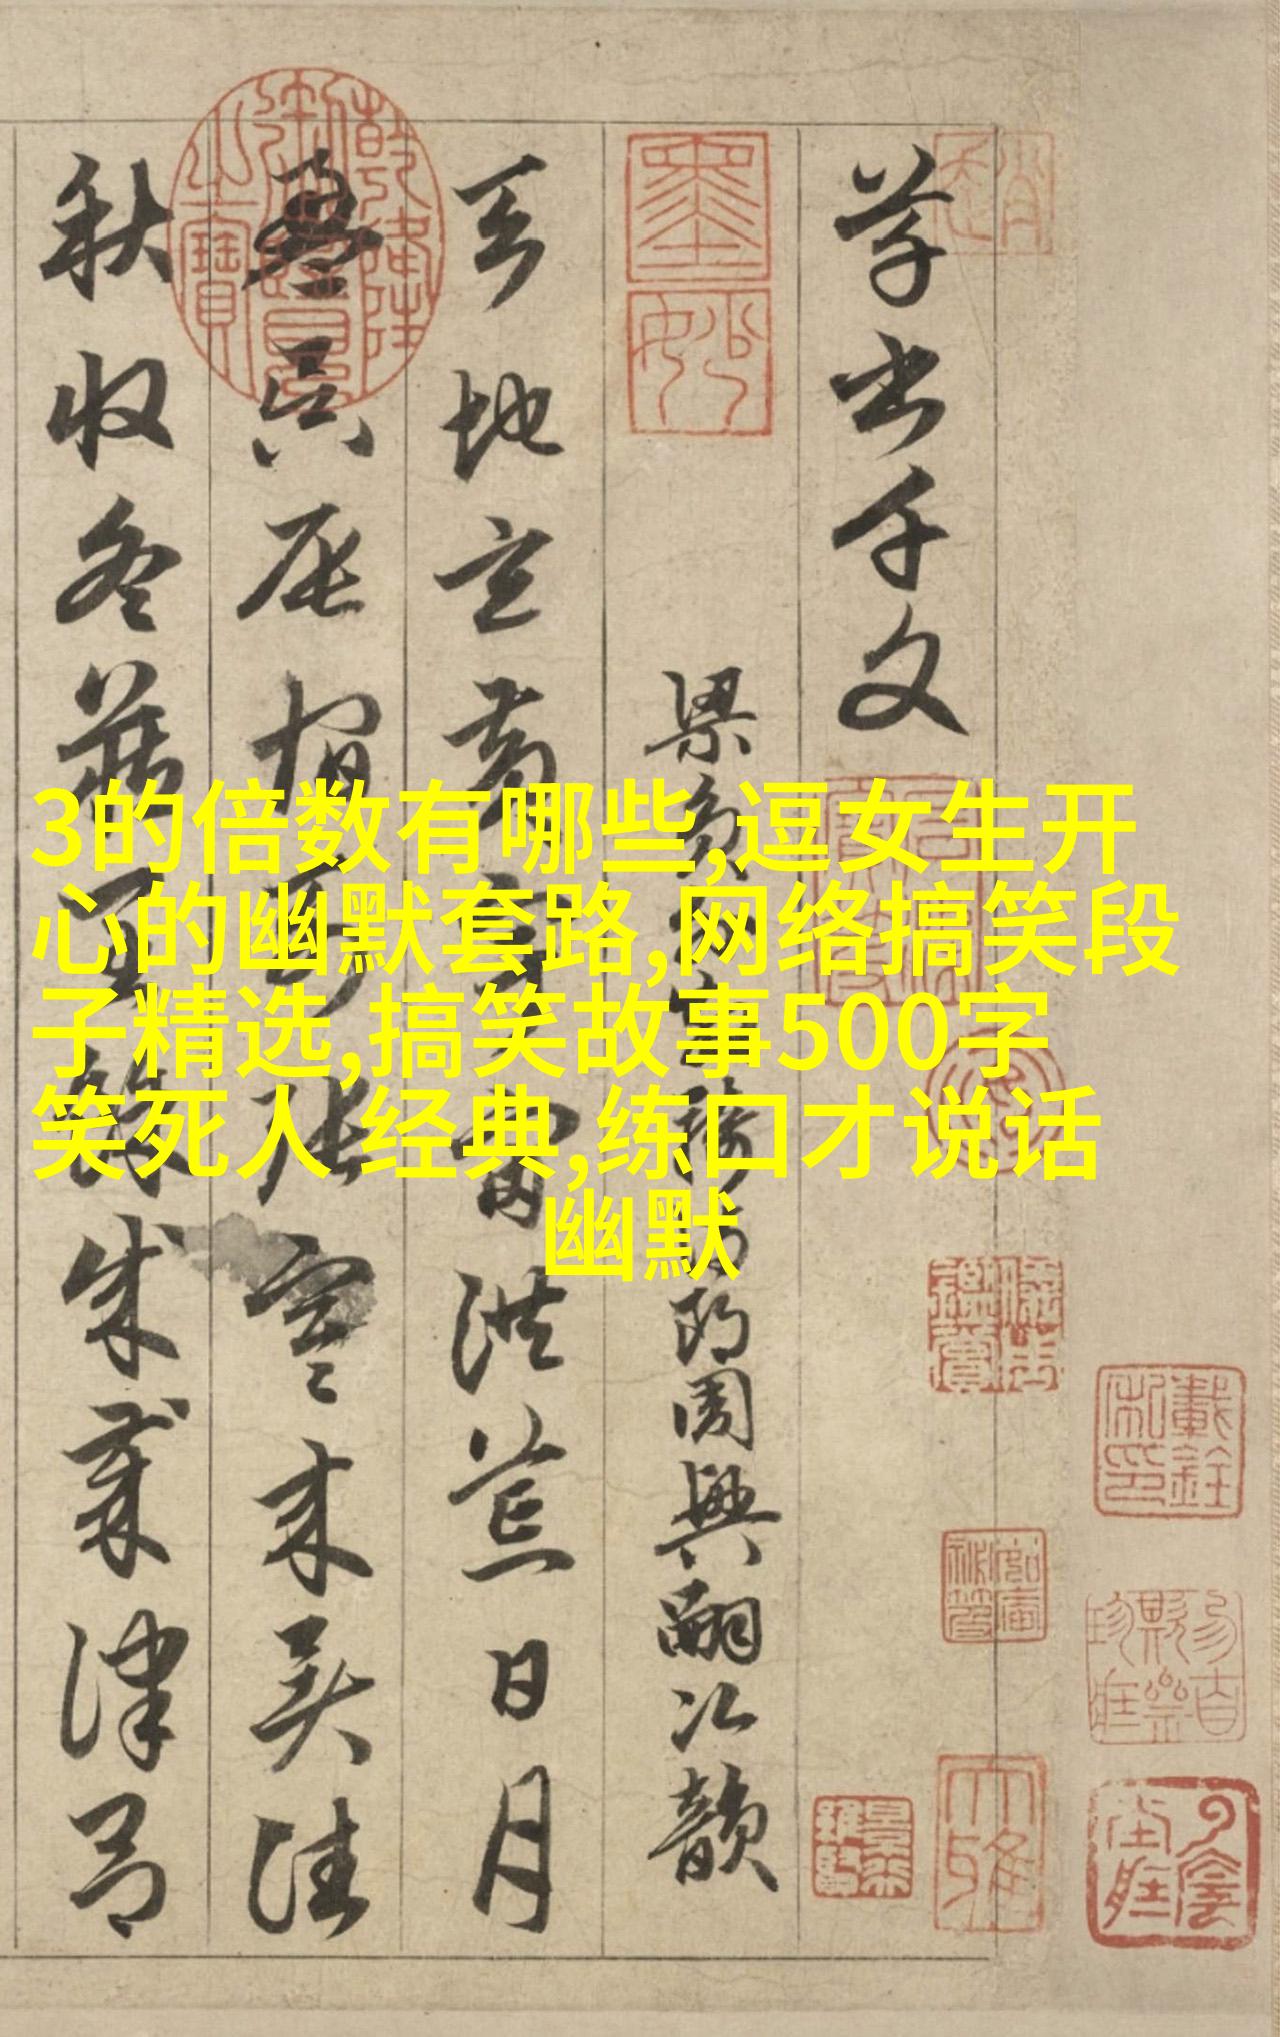 3的倍数有哪些,逗女生开
心的幽默套路,网络搞笑段
子精选,搞笑故事500字
笑死人 经典,练口才说话
幽默
草書千文
梁員外散騎侍郎周興嗣次韻
天地玄黄宇宙洪荒日月
盈昃辰宿列張寒来暑往
秋收冬蔵閏餘成歲律吕
墨妙
大雅